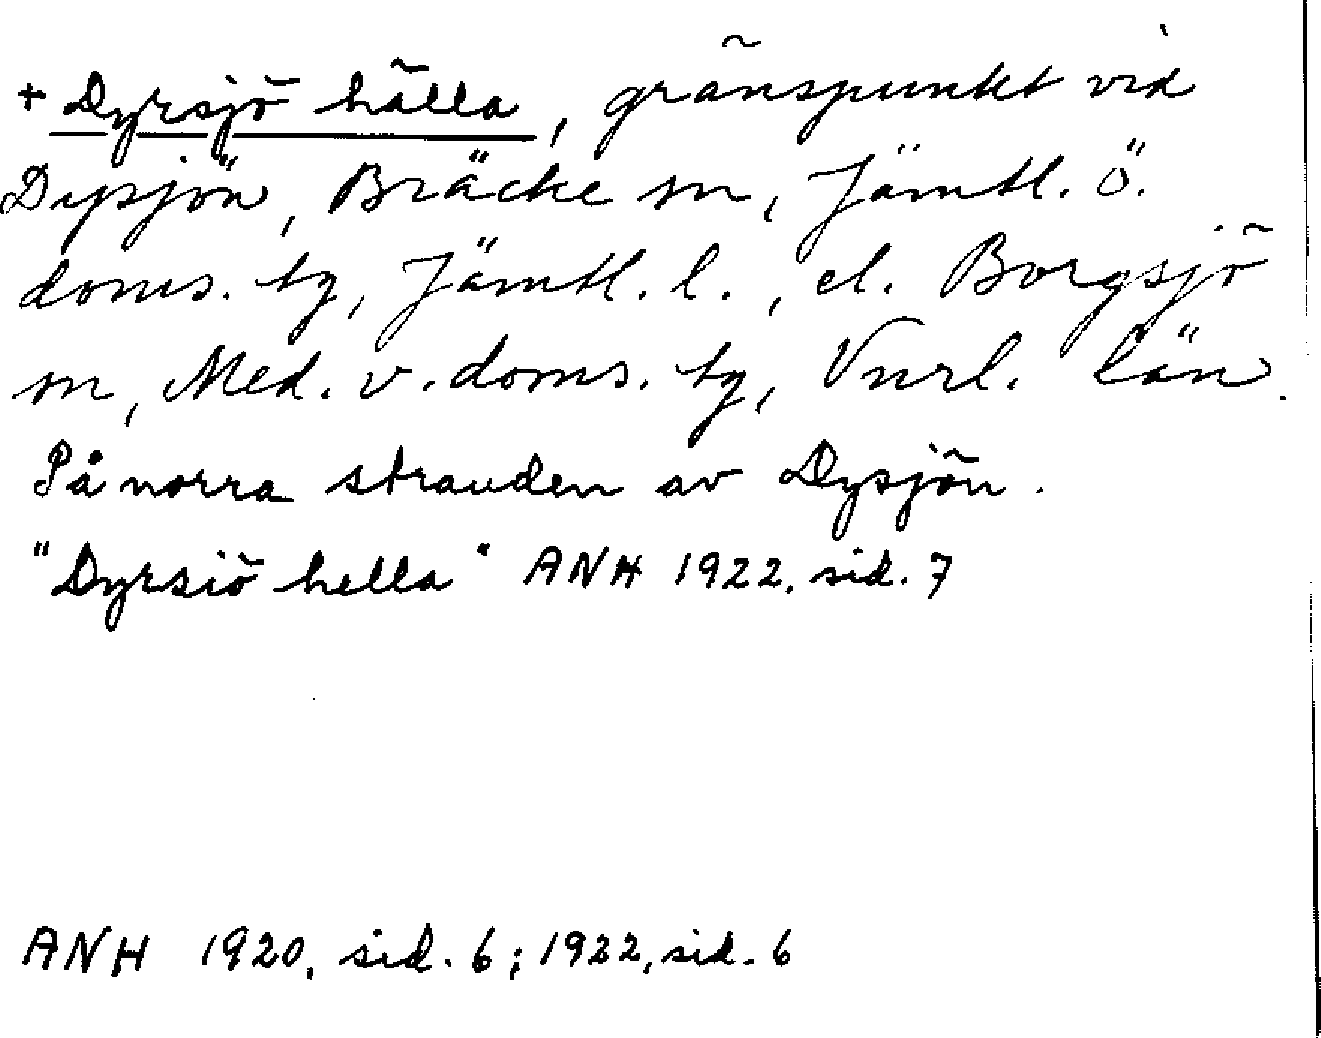 + Dyrsjö hälla, gränspunkt vid
Dysjön, Bräcke sn, Jämtl. ö.
doms. tg, Jämtl. l., el. Borgsjö
sn, Med. v. doms. tg, Vnrl. län.
På norra stranden av Dysjön.
"Dyrsiö hella" ANH 1922, sid. 7
ANH 1920, sid. 6; 1922, sid. 6